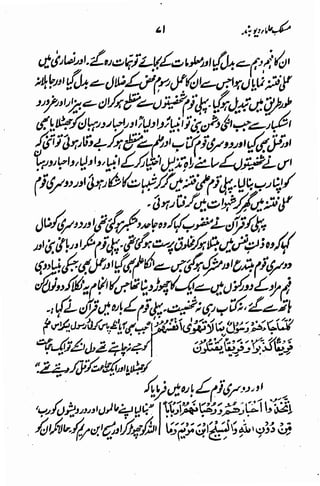 مسلک علماء دیوبند ۷۱
ان کا فہم وہم سے بدل گیا اور معلومات کے بجائے توہمات رہ گئے۔ اور نصاریٰ میں
عملی فتنہ نمایاں ہوا جس سے ان کا عمل رسوم محض کے ضلال سے بدل گیا اور جاہلانہ
طور طریق میں تبدیل ہو گیا۔ پہلی قوم شخصیتوں سے منقطع ہو کر ان سے بیزار اور غرور و
استکبار سے جب الٹی دشمن بنی تو انبیاء و اولیاء اور احبار و رہبان کو جھٹلایا بھی
اور قتل بھی کیا اور دوسری قوم کتاب اور علم سے منقطع ہو کر بے وقار ہوئی تو آنی کہ
اس نے شخصیتوں کے سامنے راہِ تذلیل اختیار کر کے انبیاء و اولیاء و احبار و رہبان
کو اپنا رب بنا لیا۔ پہلی قوم علمی فتنہ میں گھر کر شبہات کا شکار ہوئی اور دوسری قوم
عملی فتنہ میں گھر کر شہوات میں گرفتار ہوئی۔
پہلی کو قرآن نے مغضوب کہا کہ وہ جاحد و متکبر ہو گئی تھی اور دوسری کو ضال
کہا کہ وہ ذلت نفس میں مبتلا ہو کر مخلوق پرست ہو گئی تھی۔ پہلی قوم متکبر اور باغی بنی اور
دوسری قوم مبتدع اور مشرک ہو گئی جس سے انکا علم بھی گیا اور عمل بھی جبکی بنیاد وہی
فہم مراد کے دو رکنوں میں سے ایک کا چھوڑ دینا تھا جس کا انجام یہ نکلا کہ دونوں رکن
ہاتھ سے گئے، نہ کتاب رہی نہ شخصیت۔ پہلی قوم کے بارہ میں قرآن نے کہا ہے۔
كُلَّمَا جَآءَهُمْ رَسُوْلٌۢ بِمَا لَا تَهْوٰۤى اَنْفُسُهُمْ جب بھی آیا انکے پاس کوئی رسول لیکر اس حکم
فَرِيْقًا كَذَّبُوْا وَفَرِيْقًا يَّقْتُلُوْنَ کو جسے نہ چاہتے تھے دل انکے تو ایک جماعت
کو جھٹلایا اور ایک جماعت کو قتل کر دیتے تھے۔"
اور دوسری قوم کے بارہ میں فرمایا کہ
اِتَّخَذُوْۤا اَحْبَارَهُمْ وَرُهْبَانَهُمْ اَرْبَابًا بنا لیا اپنے عالموں اور درویشوں کو رب،
مِّنْ دُوْنِ اللّٰهِ وَالْمَسِيْحَ ابْنَ مَرْيَمَ وَمَآ اللہ کو چھوڑ کر اور مسیح ابن مریم کو حالانکہ ان کو